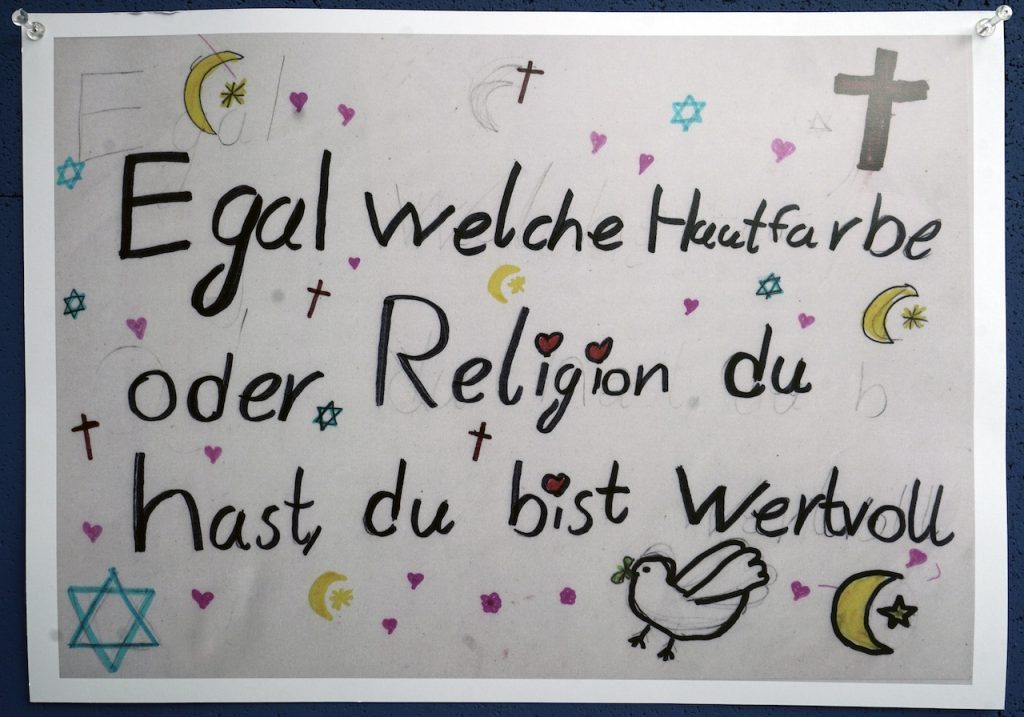 Egal welche Hautfarbe
oder Religion du
hast, du bist wertvoll